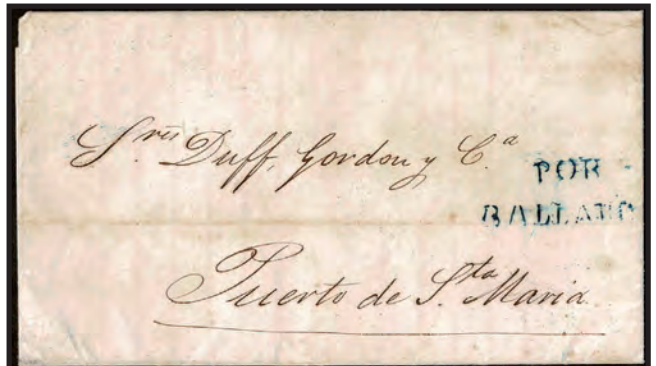 S.res Duff, Gordon y C.a
POR
BALLANO
Puerto de S.ta Maria